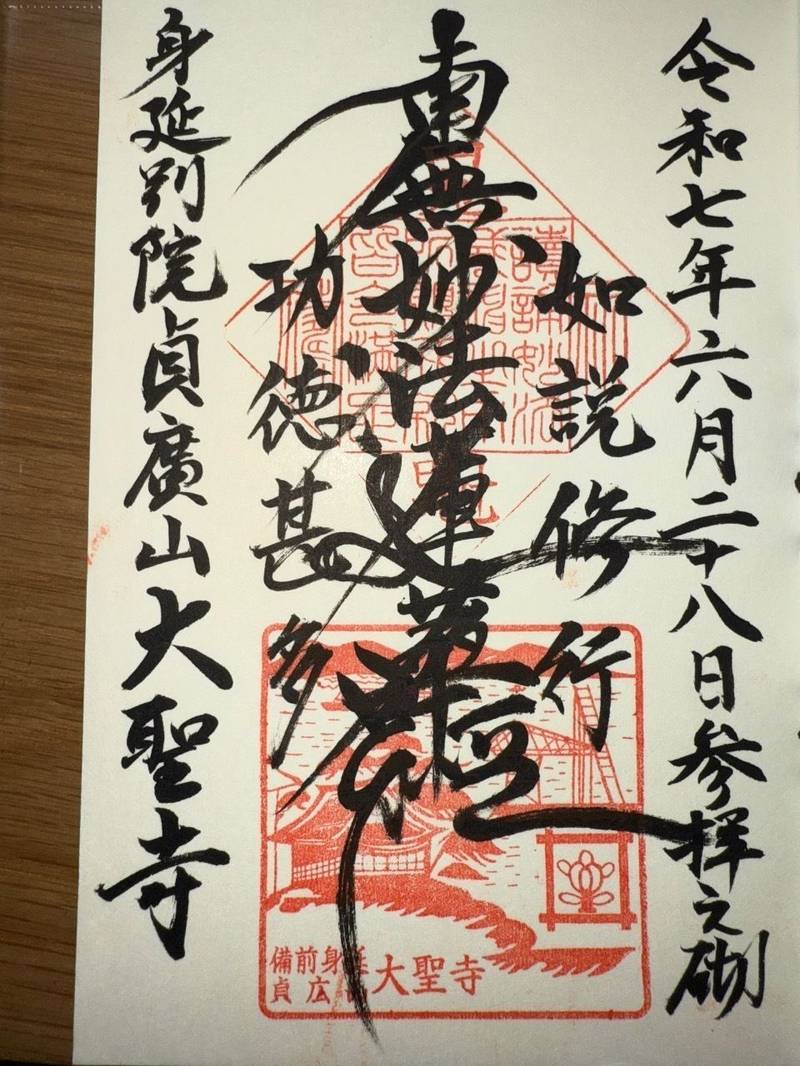 令和七年六月二十八日参拝之砌
如説修行
南無妙法蓮華経
功徳甚多
身延別院貞廣山大聖寺
備前身延
貞広
大聖寺